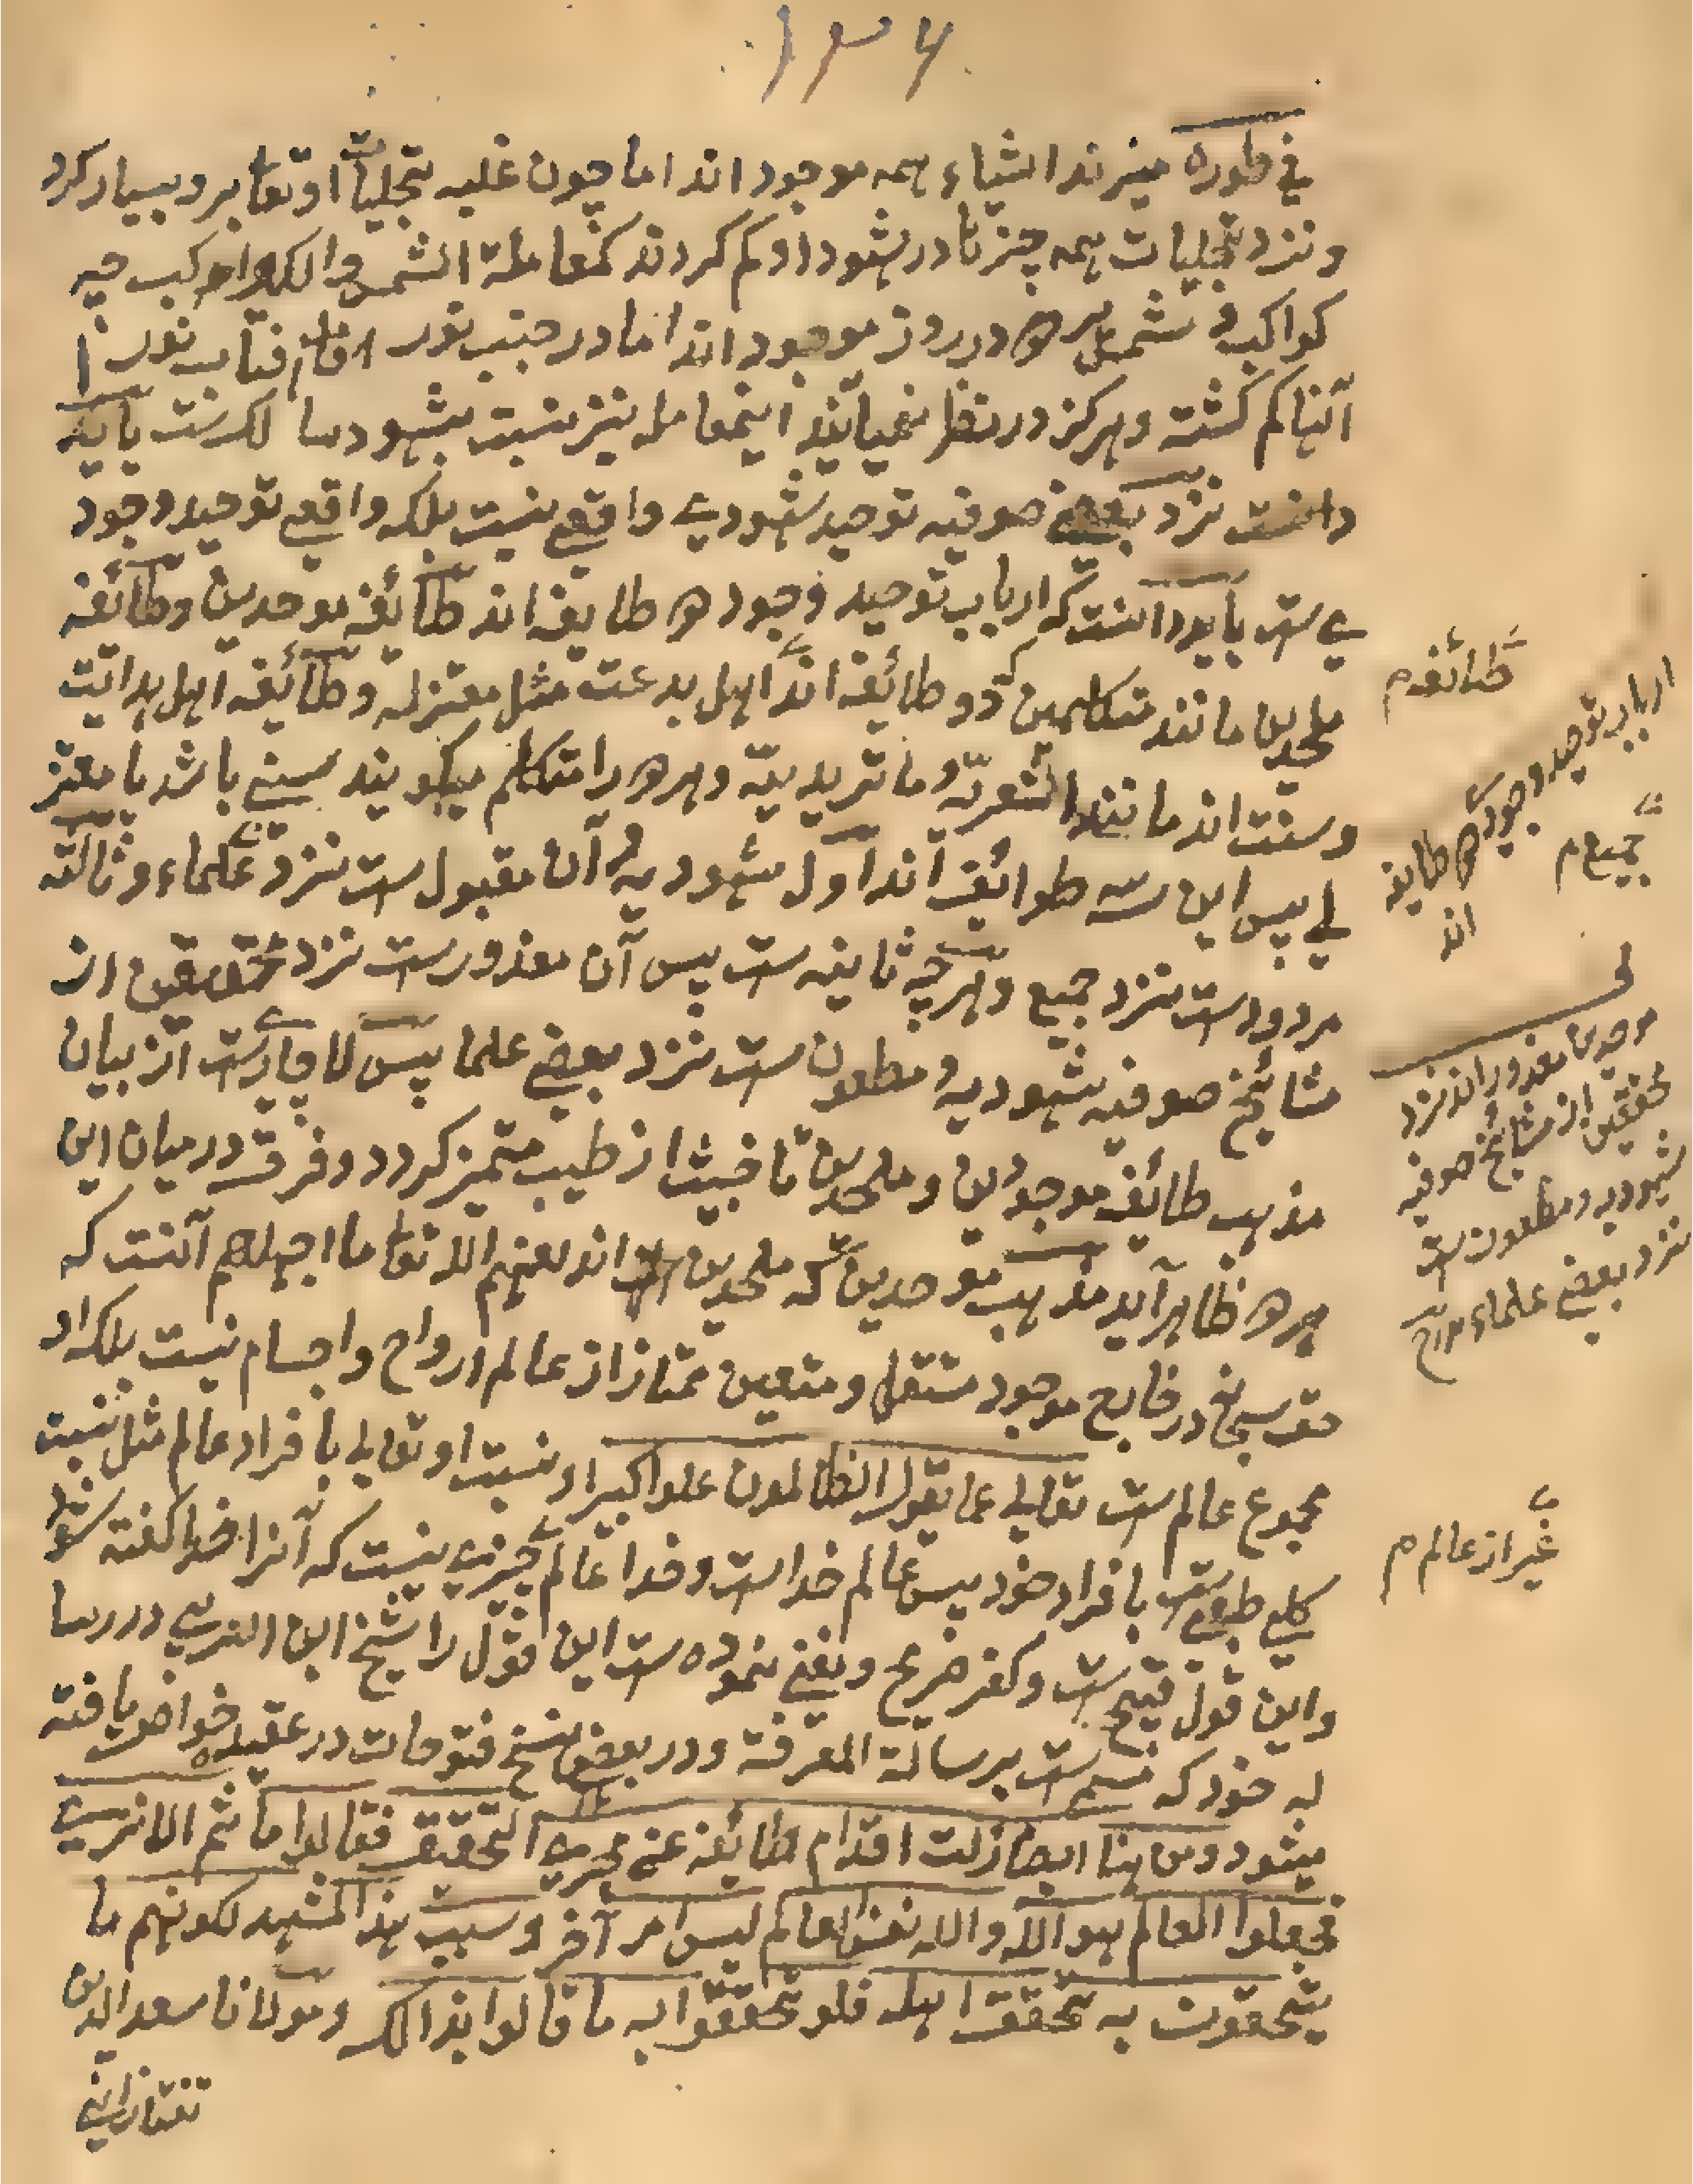 ۱۳۶
في طوره میزند اشیاء همه موجود اند اما چون غلبه تجلیات او تعا برو بسیار کرد
ونزد تجلیات همه چیزها در شهود او کم کردند کمعاملة الشمس والکواکب چه
کواکب و شمس هر دو در روز موجود اند اما در جنب نور آفتاب نور
آنها کم کشته و هرکز در نظر نمیایند اینمعامله نیز نسبت بشهود سالکست باید
دانست نزد بعضے صوفیه توحید شهودے واقعے نیست بلکه واقعے توحید وجود
ے ست باید دانست که ارباب توحید وجود دو طایفه اند طائفه موحدین وطائفه
ملحدین مانند متکلمین که دو طائفه اند اهل بدعت مثل معتزله وطائفه اهل هدایت
وسنت اند مانند اشعریّه و ماتریدییّه و هر دو را متکلم میکویند سینے باشد یا معتز
لے پس این سه طوائف اند اول شهودیه و آن مقبول ست نزد علماء و ثالثه
مردود ست نزد جمیع و هرچه ثانیه ست پس آن معذور ست نزد محققین از
مشائخ صوفیه شهودیه و مطعون ست نزد بعضے علما پس لاچارست از بیان
مذهب طائفه موحدین و ملحدین تا خبیث از طیب متمیز کردد و فرق درمیان این
هر دو ظاهر آید مذهب موحدین که ملحدین اند لعنهم الله تعا ما اجهلهم آنست که
حق سبحانه در خارج موجود مستقلے و متعین ممتاز از عالم ارواح و اجسام نیست بلکه او
مجموع عالم ست تعالے عما یقول الظالمون علوا کبیرا و نسبت او تعالے با فراد عالم مثل نسبت
کلے طبعے ست با فراد خود پس عالم خداست و خدا عالم چیزے نیست که آنرا خدا کفته شود
واین قول قبیح ست و کفر صریح و نفے نموده ست این قول را شیخ ابن العربے در رسا
له خود که مسمے ست برسالة المعرفة و در بعض نسخ فتوحات در عقیده خواص یافته
میشود ومن هنا ایضا زلت اقدام طائفة عن مجرے التحقیق فقالوا ما ثم الا ما نرے
فجعلوا العالم هو الله والله نفس العالم لیس امر آخر و سبب هذا المشهد لکونهم ما
یتحققون به تحقق اهله فلو تحققوا به ما قالوا بذالک و مولانا سعد الدین
تفتازانے
طائفه م
ارباب توحید وجودے دو طایفه اند
جمیع م
موحدین معذور اند نزد
محققین از مشائخ صوفیه
شهودیه و مطعون ست
نزد بعضے علماء
غیر از عالم م